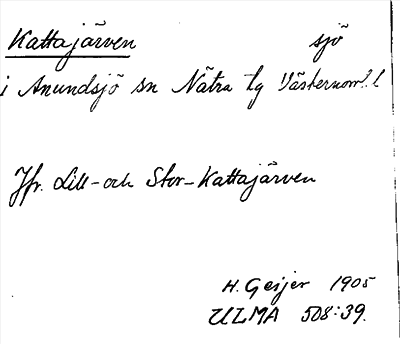 Kattajärven sjö
i Anundsjö sn Nätra tg Västernorrl. l
Jfr. Lill- och Stor-Kattajärven
H. Geijer 1905
ULMA 508:39.